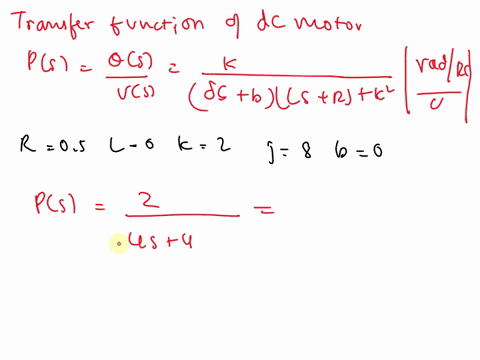 Transfer function of dc motor
P(s) = θ(s)/V(s) = k/((Js+b)(Ls+R)+k² | rad/sec/V |
R=0.5 L=0 k=2 j=8 b=0
P(s) = 2/4s+4 =